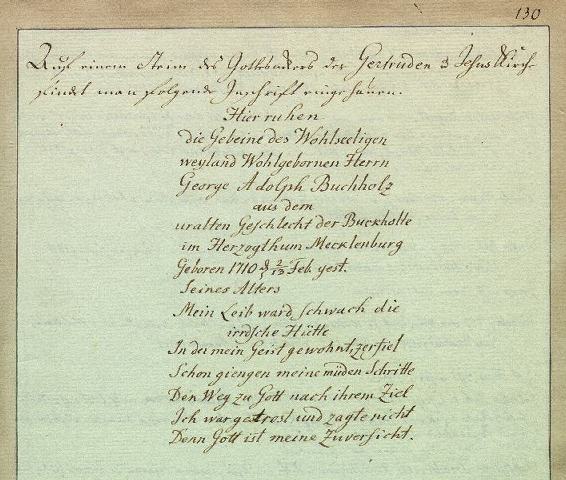 130
Auf einem Stein des Gottesackers der Gertruden Kirch-
findet man folgende Inschrift eingehauen.
Hier ruhen
die Gebeine des Wohlseeligen
weyland Wohlgebornen Herrn
George Adolph Buchholz
aus dem
uralten Geschlecht der Buckholte
im Herzogthum Mecklenburg
Geboren 1710 d 2/13 Feb. gest.
Seines Alters
Mein Leib ward schwach die
irrdsche Hütte
In der mein Geist gewohnt, zerfiel
Schon giengen meine müden Schritte
Den Weg zu Gott nach ihrem Ziel
Ich war getrost und zagte nicht
Denn Gott ist meine Zuversicht.